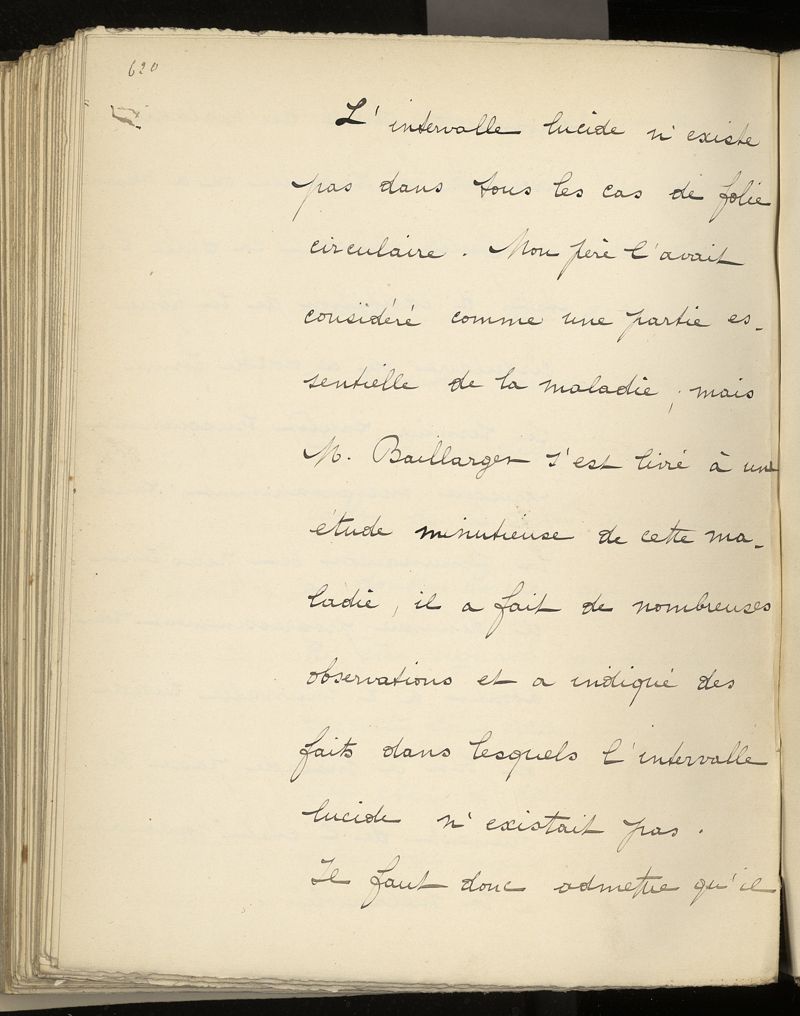 620
L'intervalle lucide n'existe
pas dans tous les cas de folie
circulaire. Mon père l'avait
considéré comme une partie es-
sentielle de la maladie, mais
M. Baillarger s'est livré à une
étude minutieuse de cette ma-
ladie, il a fait de nombreuses
observations et a indiqué des
faits dans lesquels l'intervalle
lucide n'existait pas.
Il faut donc admettre qu'il